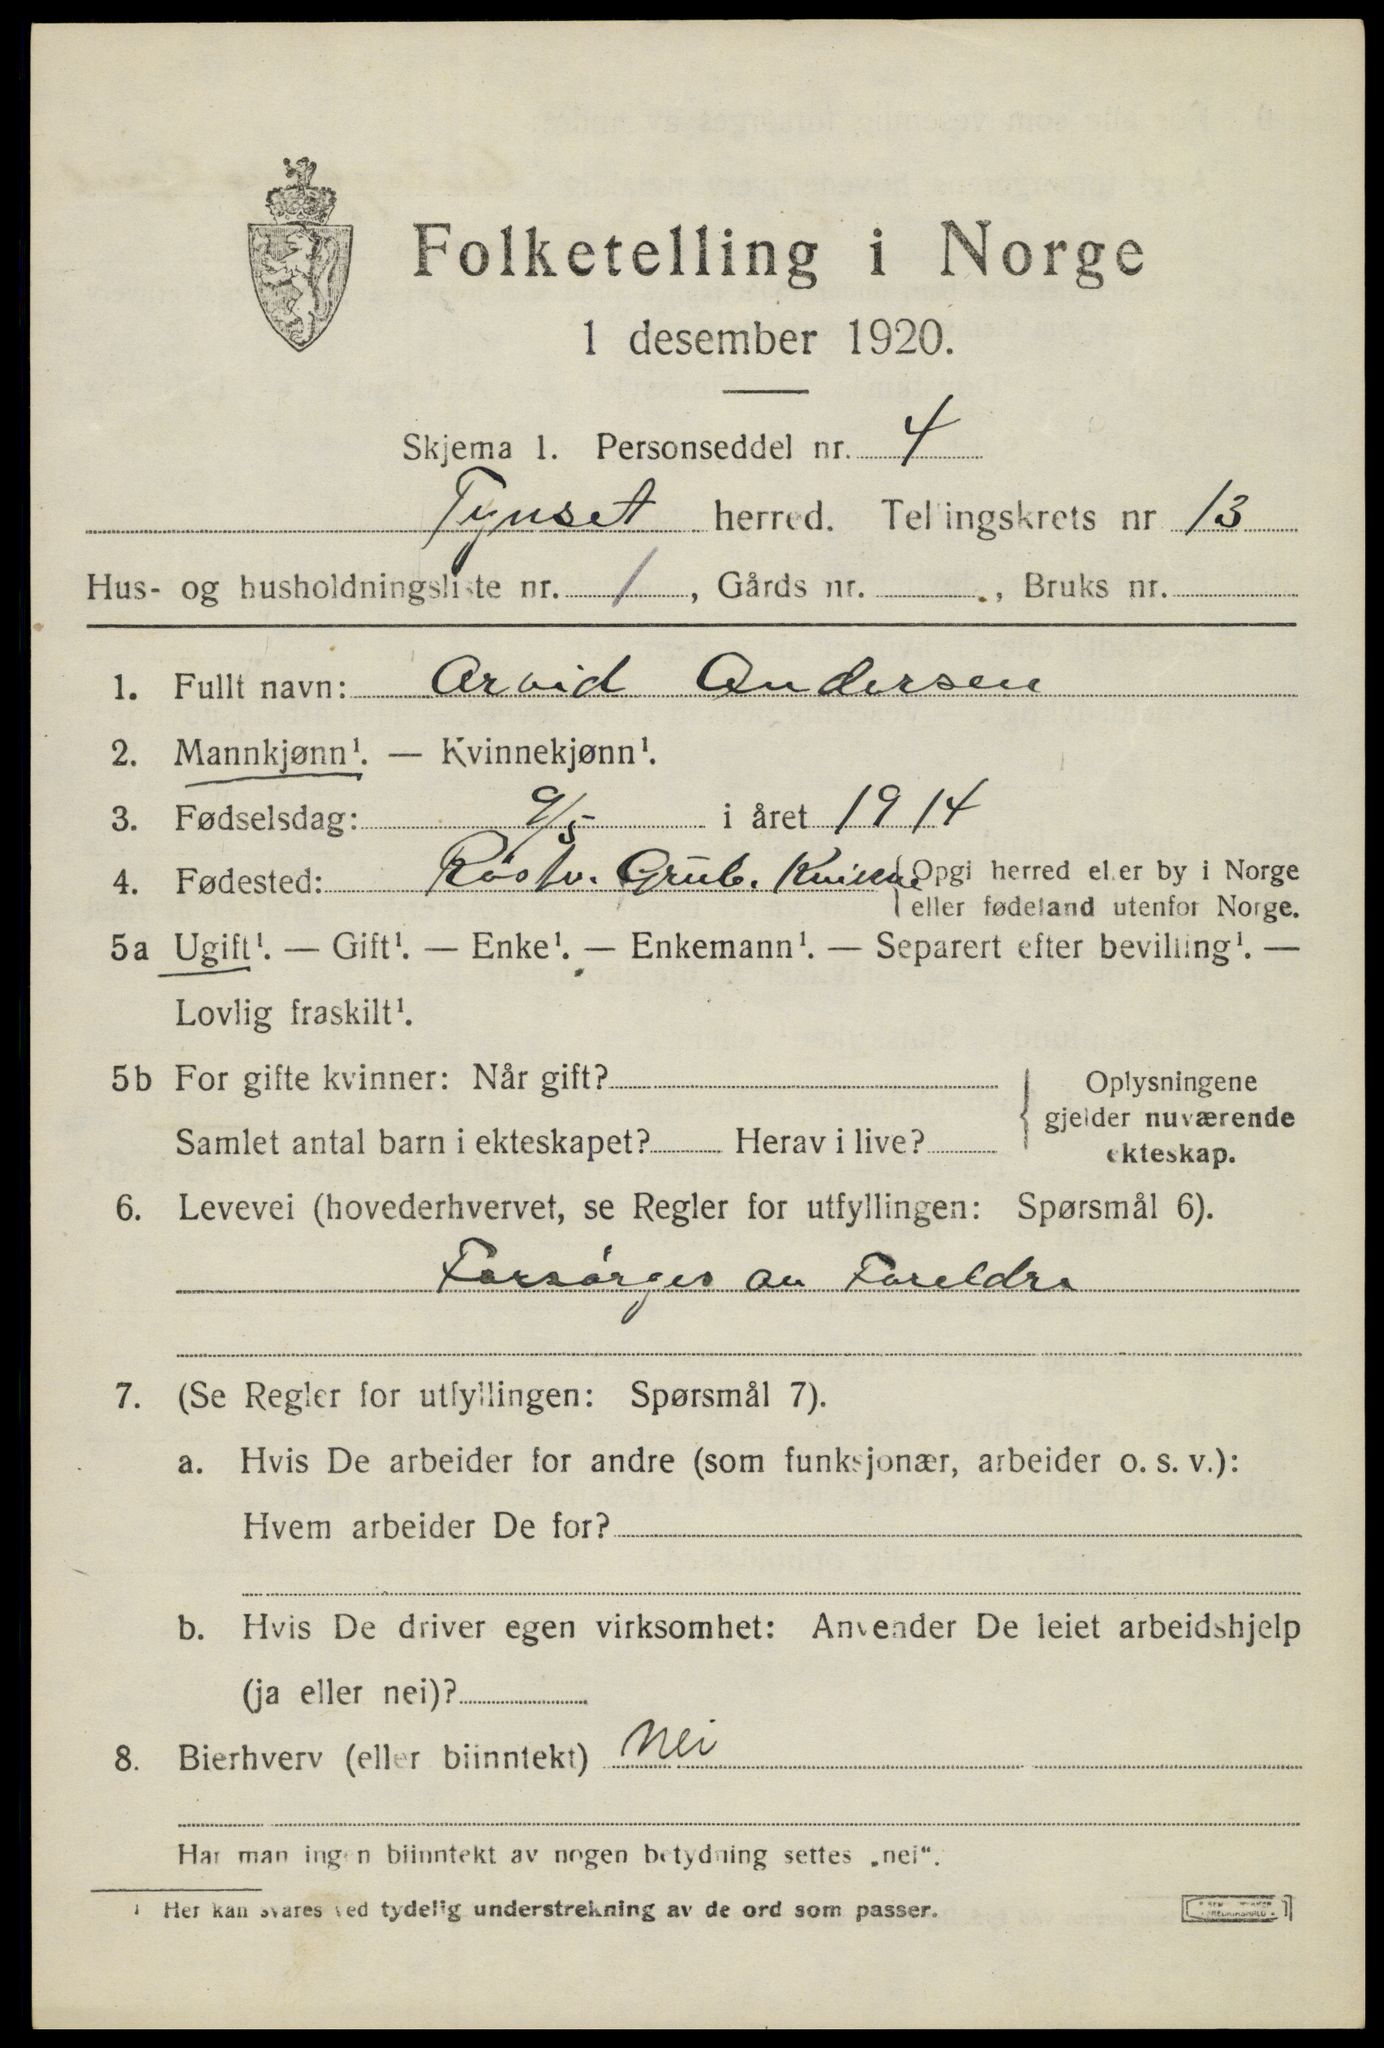 Folketelling i Norge
1 desember 1920.
Skjema 1. Personseddel nr. 4
Tynset herred. Tellingskrets nr 13
Hus- og husholdningsliste nr. 1, Gårds nr. , Bruks nr.
1. Fullt navn: Arvid Andersen
2. Mannkjønn¹. — Kvinnekjønn¹.
3. Fødselsdag: 9/5 i året 1914
4. Fødested: Grub. Kvikne {Opgi herred eller by i Norge
eller fødeland utenfor Norge.
5a Ugift¹. — Gift¹. — Enke¹. — Enkemann¹. — Separert efter bevilling¹. —
Lovlig fraskilt¹.
5b For gifte kvinner: Når gift?
Samlet antal barn i ekteskapet? Herav i live?
Oplysningene
gjelder nuværende
ekteskap.
6. Levevei (hovederhvervet, se Regler for utfyllingen: Spørsmål 6).
Forsørges av Foreldre
7. (Se Regler for utfyllingen: Spørsmål 7).
a. Hvis De arbeider for andre (som funksjonær, arbeider o. s. v.):
Hvem arbeider De for?
b. Hvis De driver egen virksomhet: Anvender De leiet arbeidshjelp
(ja eller nei)?
8. Bierhverv (eller biinntekt) Nei
Har man ingen biinntekt av nogen betydning settes „nei".
¹ Her kan svares ved tydelig understrekning av de ord som passer.